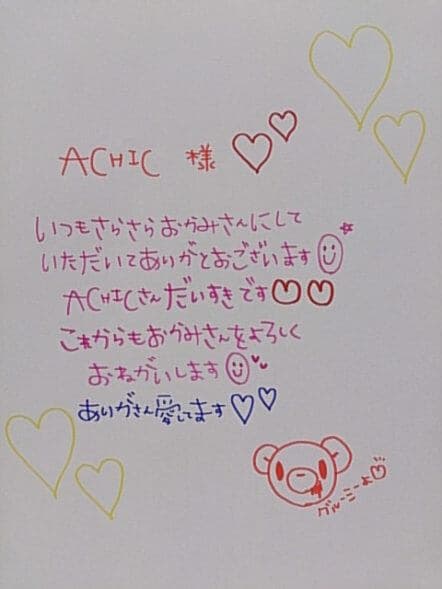 ACHIC 様
いつもさらさらおかみさんにして
いただいてありがとおございます
ACHICさんだいすきです
これからもおかみさんをよろしく
おねがいします
ありがさん愛してます
グルーミーよ